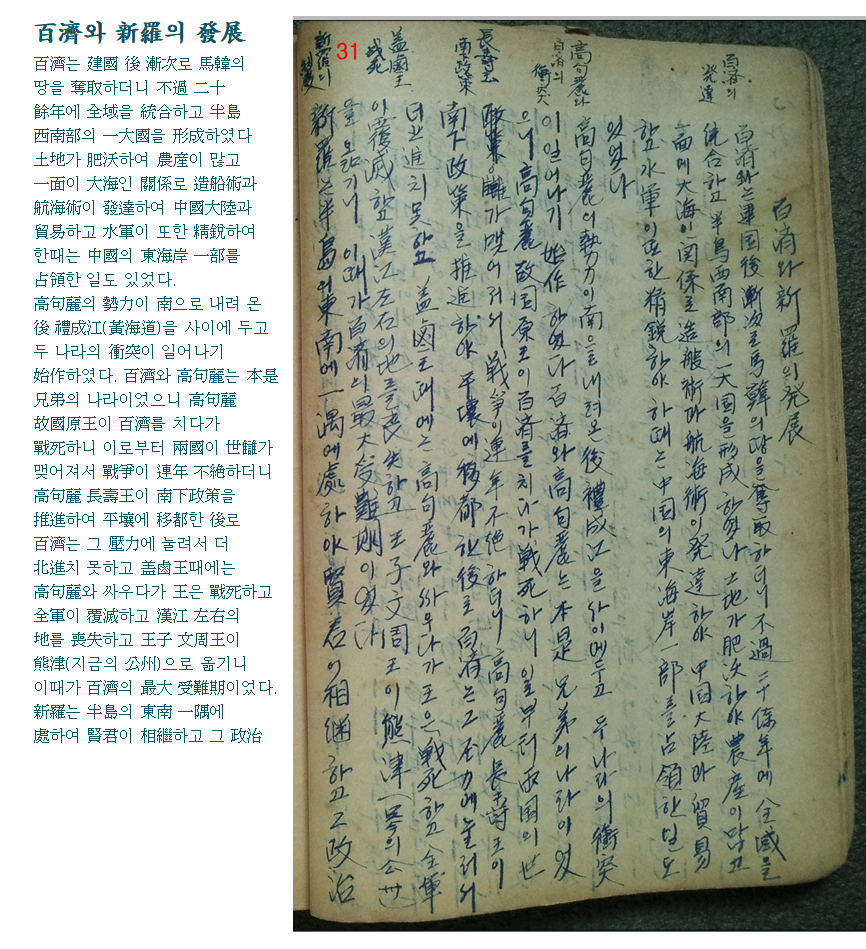 百濟와 新羅의 發展
百濟는 建國 後 漸次로 馬韓의
땅을 奪取하더니 不過 二十
餘年에 全域을 統合하고 半島
西南部의 一大國을 形成하였다
土地가 肥沃하여 農産이 많고
一面이 大海인 關係로 造船術과
航海術이 發達하여 中國大陸과
貿易하고 水軍이 또한 精銳하여
한때는 中國의 東海岸 一部를
占領한 일도 있었다.
高句麗의 勢力이 南으로 내려 온
後 禮成江(黃海道)을 사이에 두고
두 나라의 衝突이 일어나기
始作하였다. 百濟와 高句麗는 本是
兄弟의 나라이었으니 高句麗
故國原王이 百濟를 치다가
戰死하니 이로부터 兩國이 世讎가
맺어져서 戰爭이 連年 不絶하더니
高句麗 長壽王이 南下政策을
推進하여 平壤에 移都한 後로
百濟는 그 壓力에 눌려서 더
北進치 못하고 盖鹵王때에는
高句麗와 싸우다가 王은 戰死하고
全軍이 覆滅하고 漢江 左右의
地를 喪失하고 王子 文周王이
熊津(지금의 公州)으로 옮기니
이때가 百濟의 最大 受難期이었다.
新羅는 半島의 東南 一隅에
處하여 賢君이 相繼하고 그 政治
31
百済의
発達
高句麗와
百済의
衝突
長壽王
南下政策
盖鹵王
戦死
新羅의
百済와 新羅의 発展
百済와는 建国後 漸次로 馬韓의 땅을 奪取하더니 不過 二十余年에 全域을
統合하고 半島西南部의 一大国을 形成하였다 土地가 肥沃하야 農産이 많고
一面에 大海인 関係로 造船術과 航海術이 発達하야 中国大陸과 貿易
하고 水軍이 또한 精鋭하야 한때는 中国의 東海岸 一部를 占領한 일도
있었다
高句麗의 勢力이 南으로 내려온 後 禮成江을 사이에 두고 두 나라의 衝突
이 일어나기 始作하였다 百済와 高句麗는 本是 兄弟의 나라이었
으니 高句麗 故国原王이 百済를 치다가 戦死하니 일로부터 両国의 世
讎가 맺어저서 戦争이 連年不絶하더니 高句麗 長壽王이
南下政策을 推進하야 平壌에 移都한 後로 百済는 그 圧力에 눌려서
더 北進치 못하고 盖鹵王때에는 高句麗와 싸우다가 王은 戦死하고 全軍
이 覆滅하고 漢江左右의 地를 喪失하고 王子 文周王이 熊津
을 옮기니 이때가 百済의 最大受難期이었다
新羅는 半島의 東南에 一隅에 處하야 賢君이 相継하고 그 政治